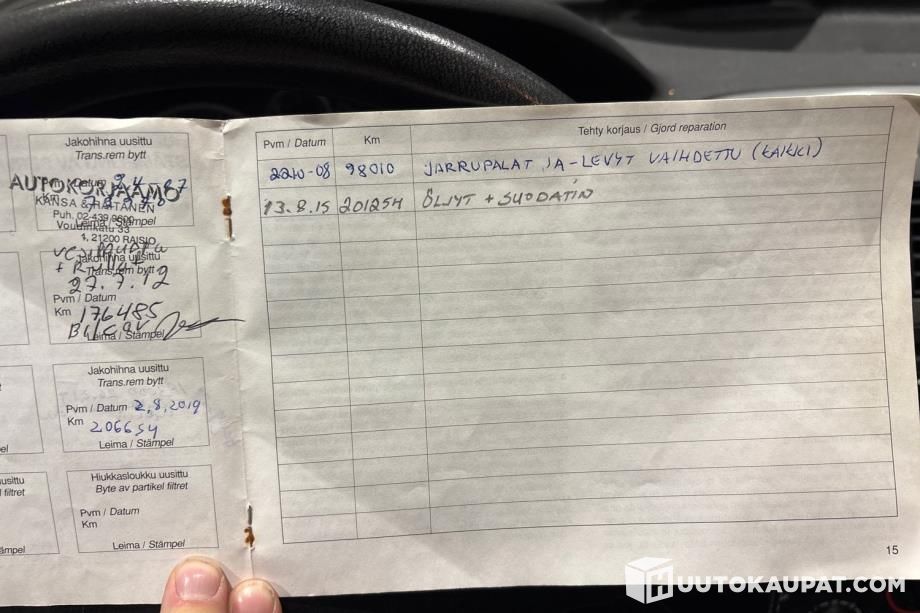 Jakohihna uusittu
Trans.rem bytt
AUTOKORJAAMO
KANSA & RAITANEN
Puh. 02-439 9600
Voudinkatu 33
21200 RAISIO
Leima / Stämpel
Jakohihna uusittu
Trans.rem bytt
27.7.12
Pvm / Datum
Km 176485
Leima / Stämpel
Jakohihna uusittu
Trans.rem bytt
Pvm / Datum 2,8,2019
Km 206654
Leima / Stämpel
Hiukkasloukku uusittu
Byte av partikel filtret
Pvm / Datum
Km
Leima / Stämpel
uusittu
filtret
ämpel
Pvm / Datum Km Tehty korjaus / Gjord reparation
98010 JARRUPALAT JA-LEVYT VAIHDETTU (KAIKKI)
13.8.15 201254 ÖLJYT + SUODATIN
15
HUUTOKAUPAT.COM